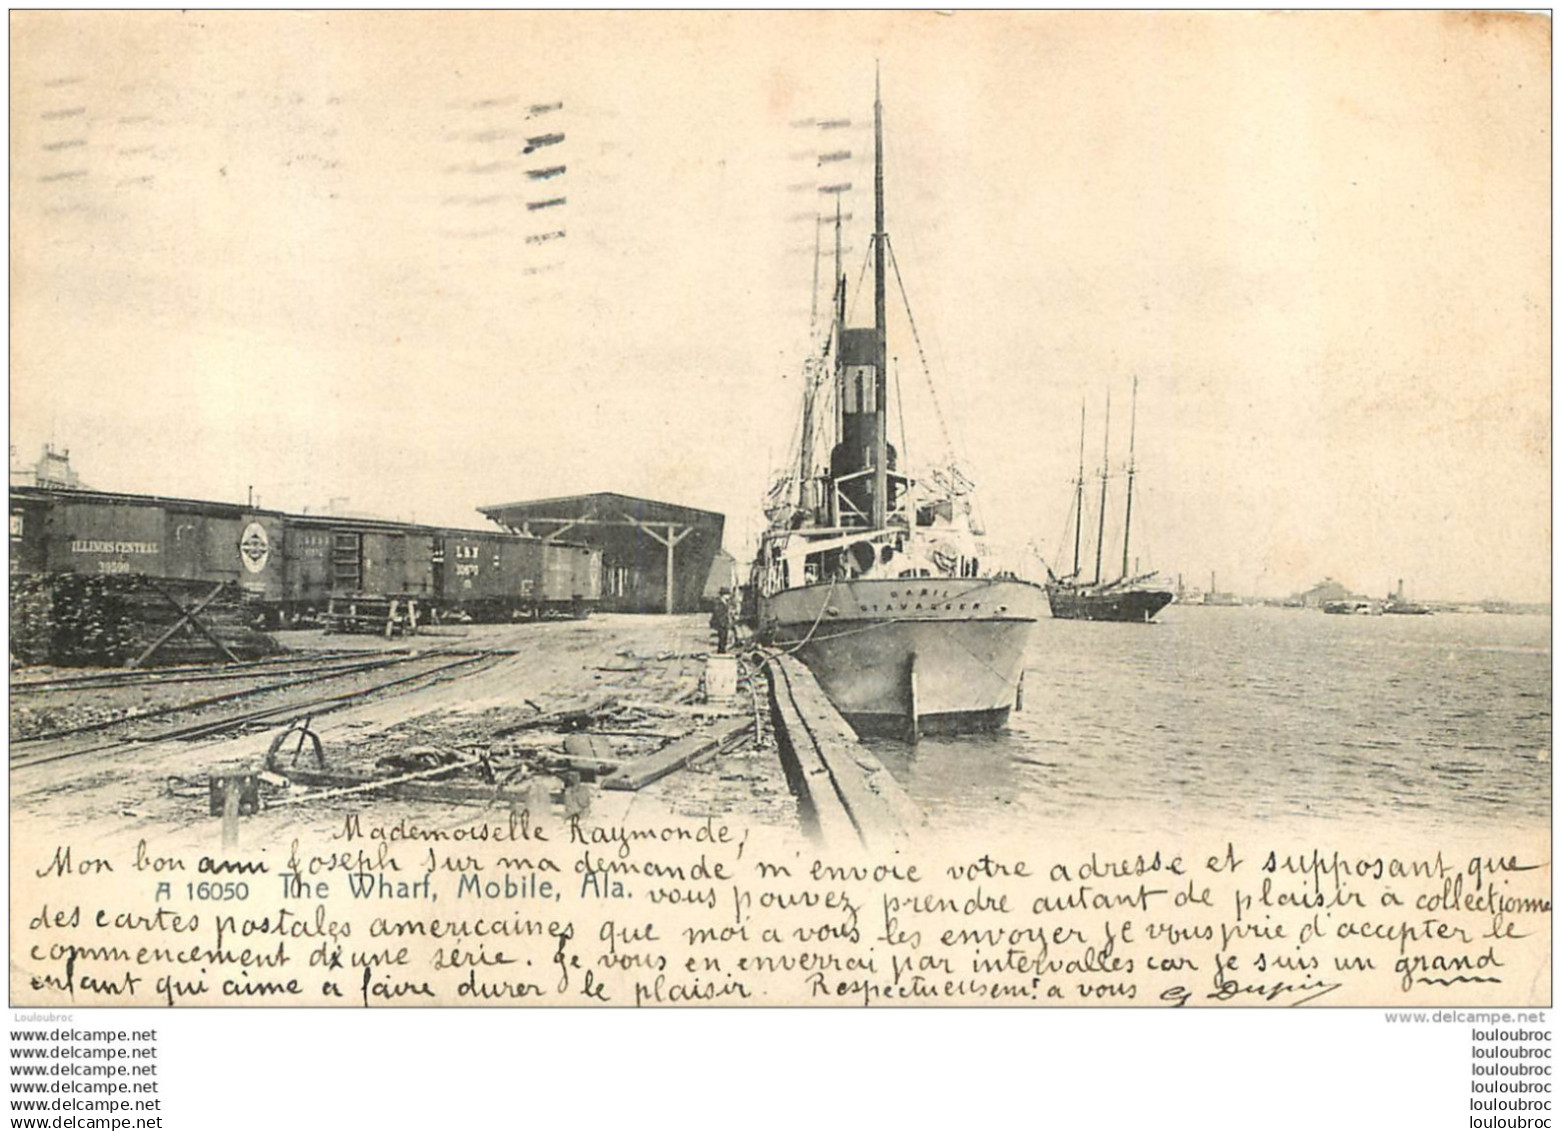 ILLINOIS CENTRAL
39590
L & N
STAVANGER
Mademoiselle Raymonde,
Mon bon ami Joseph sur ma demande m'envoie votre adresse et supposant que
A 16050 The Wharf, Mobile, Ala.
vous pouvez prendre autant de plaisir à collectionner
des cartes postales americaines que moi a vous les envoyer je vous prie d'accepter le
commencement d'une série. Je vous en enverrai par intervalles car je suis un grand
enfant qui aime a faire durer le plaisir. Respectueusemt. a vous G Dupin
Louloubroc
www.delcampe.net
www.delcampe.net
www.delcampe.net
www.delcampe.net
www.delcampe.net
www.delcampe.net
www.delcampe.net
louloubroc
louloubroc
louloubroc
louloubroc
louloubroc
louloubroc